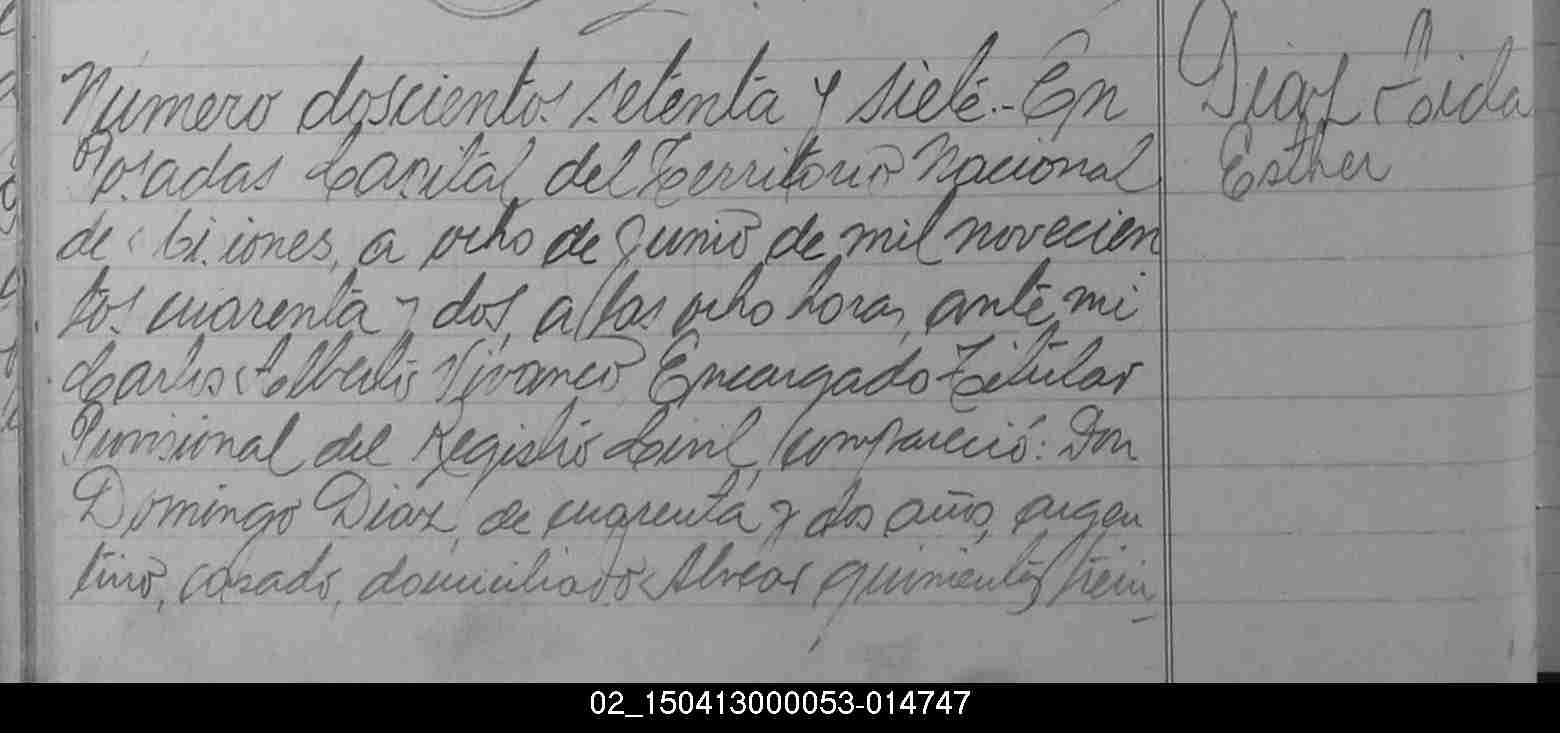 Número doscientos setenta y siete.- En
Posadas Capital del Territorio Nacional
de Misiones, a ocho de Junio de mil novecien
tos cuarenta y dos, a las ocho horas, ante mi
Carlos Alberto Vivanco Encargado Titular
Provisional del Registro Civil, compareció: Don
Domingo Diaz, de cuarenta y dos años, argen
tino, casado, domiciliado Alvear quinientos trein
Diaz
Esther
02_150413000053-014747